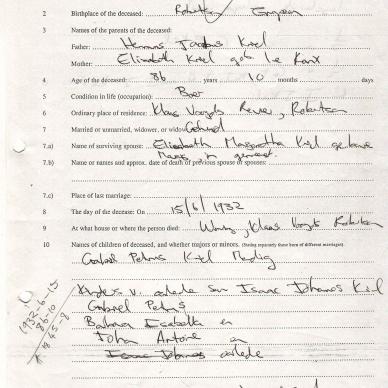 2 Birthplace of the deceased: Robertson
3 Names of the parents of the deceased:
Father: Hermanus Jacobus Kriel
Mother: Elizabeth Kriel geb le Roux
4 Age of the deceased: 86 years 10 months days
5 Condition in life (occupation): Boer
6 Ordinary place of residence: Klaas Voogds Rivier, Robertson
7 Married or unmarried, widower, or widow: Gehuwd
7.a) Name of surviving spouse: Elizabeth Margaretha Kriel gebore
7.b) Name or names and approx. date of death of previous spouse or spouses:
7.c) Place of last marriage:
8 The day of the decease: On 15/6/1932
9 At what house or where the person died: Woning, Klaas Voogds Robertson
10 Names of children of deceased, and whether majors or minors. (Stating separately those born of different marriages).
Gabriel Petrus Kriel Mondig
v. oorlede Isaac Johannes Kriel
Gabriel Petrus
Isabella en
John Antonie en
Isaac Johannes oorlede
1932-6-15
86-10
1845-8